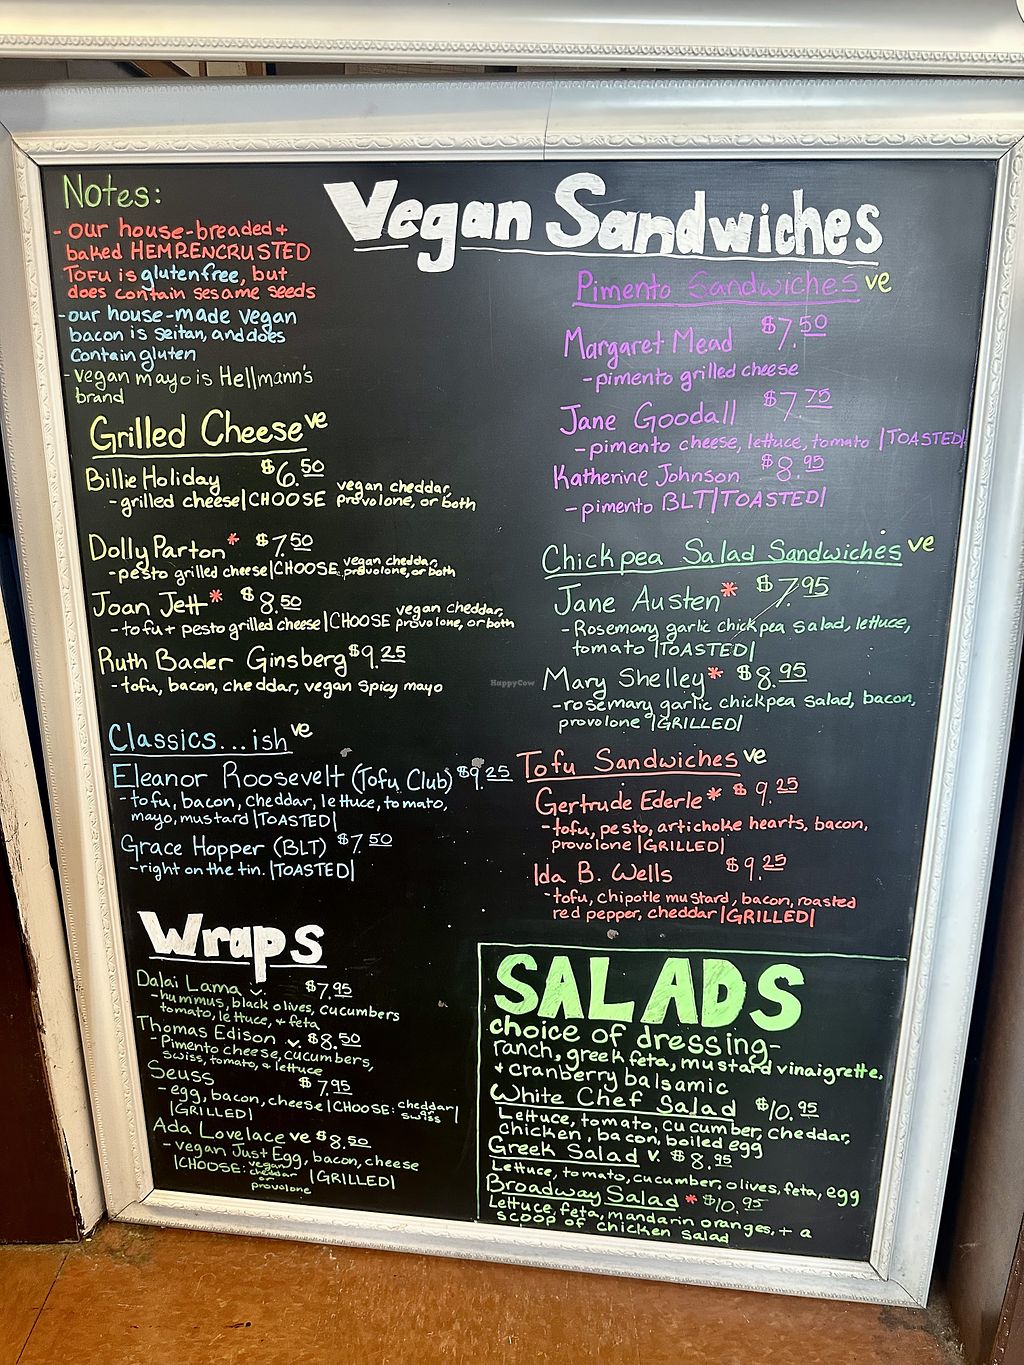 Vegan Sandwiches
Notes:
- our house-breaded +
baked HEMP.ENCRUSTED
TOFU is gluten free, but
does contain sesame seeds
- our house-made vegan
bacon is seitan, and does
contain gluten
- vegan mayo is Hellmann's
brand
Grilled Cheese ve
Billie Holiday $6.50
- grilled cheese|CHOOSE vegan cheddar,
provolone, or both
Dolly Parton* $7.50
- pesto grilled cheese|CHOOSE vegan cheddar,
provolone, or both
Joan Jett* $8.50
- tofu + pesto grilled cheese|CHOOSE vegan cheddar,
provolone, or both
Ruth Bader Ginsberg $9.25
- tofu, bacon, cheddar, vegan spicy mayo
Classics...ish ve
Eleanor Roosevelt (Tofu Club) $9.25
- tofu, bacon, cheddar, lettuce, tomato,
mayo, mustard |TOASTED|
Grace Hopper (BLT) $7.50
- right on the tin. |TOASTED|
Pimento Sandwiches ve
Margaret Mead $7.50
- pimento grilled cheese
Jane Goodall $7.75
- pimento cheese, lettuce, tomato |TOASTED|
Katherine Johnson $8.95
- pimento BLT|TOASTED|
Chickpea Salad Sandwiches ve
Jane Austen* $7.95
- Rosemary garlic chickpea salad, lettuce,
tomato |TOASTED|
HappyCow
Mary Shelley* $8.95
- rosemary garlic chickpea salad, bacon,
provolone |GRILLED|
Tofu Sandwiches ve
Gertrude Ederle* $9.25
- tofu, pesto, artichoke hearts, bacon,
provolone |GRILLED|
Ida B. Wells $9.25
- tofu, chipotle mustard, bacon, roasted
red pepper, cheddar |GRILLED|
Wraps
Dalai Lama v. $7.95
- hummus, black olives, cucumbers
tomato, lettuce, + feta
Thomas Edison v. $8.50
- Pimento cheese, cucumbers,
swiss, tomato, + lettuce
Seuss $7.95
- egg, bacon, cheese|CHOOSE: cheddar|
swiss
|GRILLED|
Ada Lovelace ve $8.50
- vegan Just Egg, bacon, cheese
|CHOOSE: vegan cheddar or provolone |GRILLED|
SALADS
choice of dressing-
ranch, greek feta, mustard vinaigrette,
+ cranberry balsamic
White Chef Salad $10.95
Lettuce, tomato, cucumber, cheddar,
chicken, bacon, boiled egg
Greek Salad v. $8.95
Lettuce, tomato, cucumber, olives, feta, egg
Broadway Salad * $10.95
Lettuce, feta, mandarin oranges, + a
scoop of chicken salad